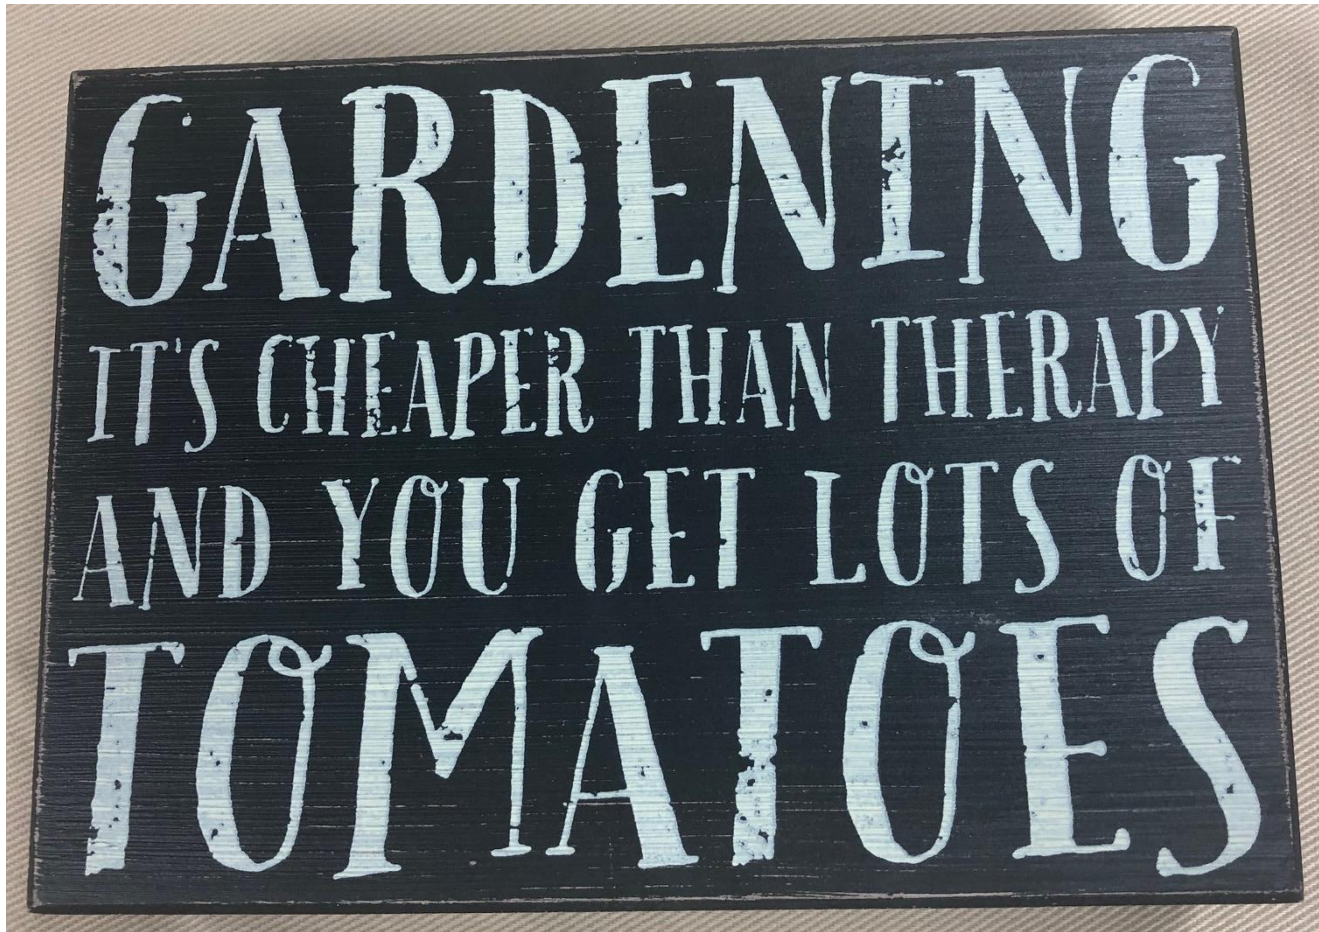 GARDENING
IT'S CHEAPER THAN THERAPY
AND YOU GET LOTS OF
TOMATOES